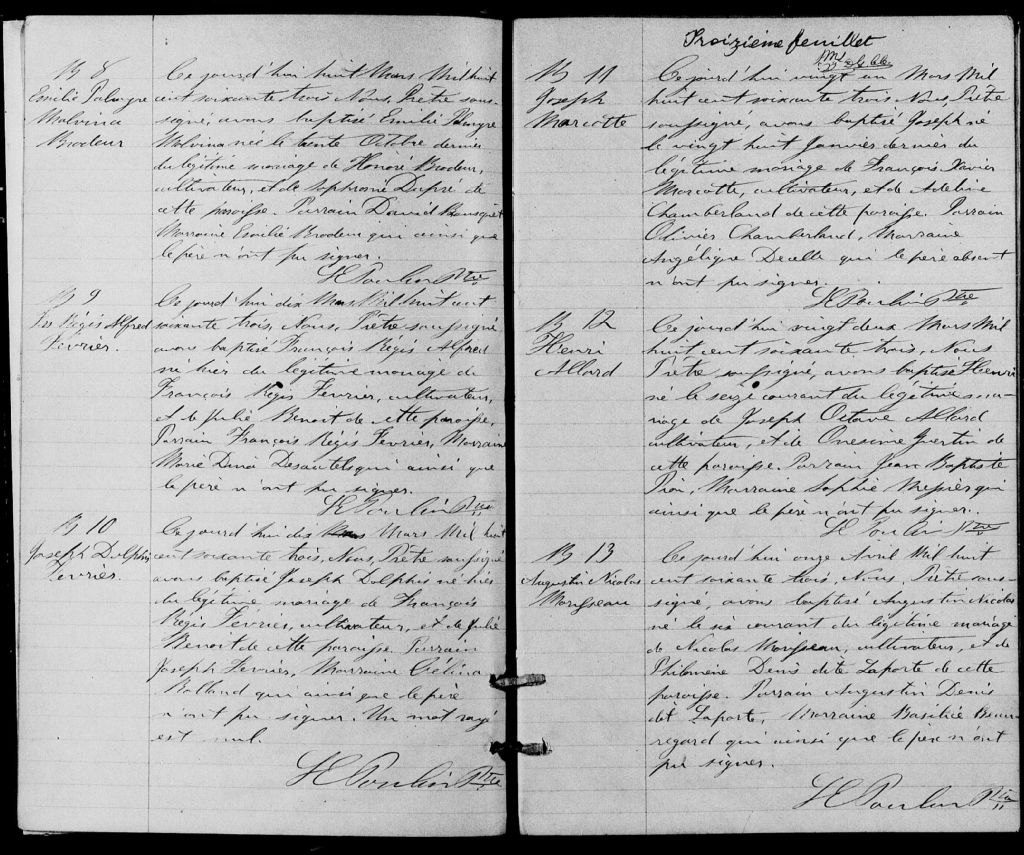 B 8
Emilie Palmyre
Malvina
Brodeur
Ce jourd'hui huit Mars Mil huit
cent soixante trois, Nous, Prêtre sous-
signé, avons baptisé Emilie Palmyre
Malvina née le trente Octobre dernier
du légitime mariage de Honoré Brodeur,
cultivateur, et de Sophronie Dupré de
cette paroisse. Parrain David Bousquet
Marraine Emilie Brodeur qui ainsi que
le père n'ont pu signer.
Poulin Ptre
B 9
Frs Régis Alfred
Fevrier.
Ce jourd'hui dix Mars Mil huit cent
soixante trois, Nous, Prêtre soussigné
avons baptisé François Régis Alfred
né hier du légitime mariage de
François Régis Fevrier, cultivateur,
et de Julie Benoit de cette paroisse,
Parrain François Régis Fevrier, Marraine
Marie Desautels qui ainsi que
le père n'ont pu signer.
Poulin Ptre
B 10
Joseph Dolphis
Fevrier.
Ce jourd'hui dix Mars Mil huit
cent soixante trois, Nous, Prêtre soussigné
avons baptisé Joseph Dolphis né hier
du légitime mariage de François
Régis Fevrier, cultivateur, et de Julie
Benoit de cette paroisse. Parrain
Joseph Fevrier, Marraine Celina
Balland qui ainsi que le père
n'ont pu signer. Un mot rayé
est nul.
Poulin Ptre
Troizième feuillet
B 11
Joseph
Marcotte
Ce jourd'hui vingt un Mars Mil
huit cent soixante trois, Nous, Prêtre
soussigné, avons baptisé Joseph né
le vingt huit Janvier dernier du
légitime mariage de François Xavier
Marcotte, cultivateur, et de Adeline
Chamberland de cette paroisse. Parrain
Olivier Chamberland, Marraine
Angélique Decelle qui le père absent
n'ont pu signer.
Poulin Ptre
B 12
Henri
Allard
Ce jourd'hui vingt deux Mars Mil
huit cent soixante trois, Nous
Prêtre soussigné, avons baptisé Henri
né le seize courant du légitime ma-
riage de Joseph Octave Allard
cultivateur, et de Onesime Guertin de
cette paroisse. Parrain Jean Baptiste
Pion, Marraine Sophie Messier qui
ainsi que le père n'ont pu signer.
Poulin Ptre
B 13
Augustin Nicolas
Morisseau
Ce jourd'hui onze Avril Mil huit
cent soixante trois, Nous, Prêtre sous-
signé, avons baptisé Augustin Nicolas
né le six courant du légitime mariage
de Nicolas Morisseau, cultivateur, et de
Philomène Denis dite Laporte de cette
paroisse. Parrain Augustin Denis
dit Laporte, Marraine Basilice Beau-
regard qui ainsi que le père n'ont
pu signer.
Poulin Ptre